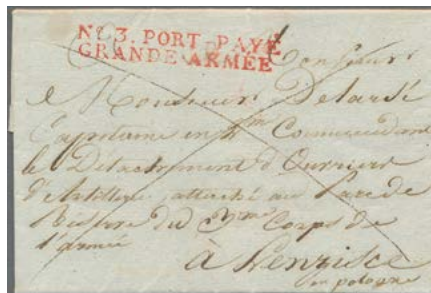 No 3. PORT PAYÉ
GRANDE ARMÉE
Monsieur
Monsieur
Capitaine en Commandant
le Détachement d'Ouvriers
d'artillerie attaché au Parc de
Réserve du 3me Corps de
l'armée
à
en pologne